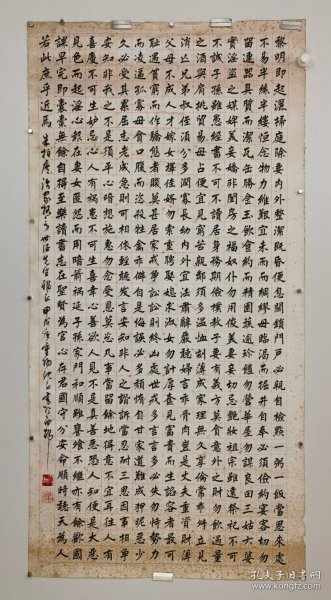 黎明即起灑掃庭除要內外整潔既昏便息關鎖門戶必親自檢點一粥一飯當思來處
不易半絲半縷恒念物力維艱宜未雨而綢繆毋臨渴而掘井自奉必須儉約宴客切勿
留連器具質而潔瓦缶勝金玉飲食約而精園蔬逾珍饈勿營華屋勿謀良田三姑六婆
實淫盜之媒婢美妾嬌非閨房之福奴仆勿用俊美妻妾切忌艷妝祖宗雖遠祭祀不可
不誠子孫雖愚經書不可不讀居身務期儉樸教子要有義方莫貪意外之財勿飲過量
之酒與肩挑貿易毋占便宜見窮苦親鄰須多溫恤刻薄成家理無久享倫常乖舛立見
消亡兄弟叔侄須分多潤寡長幼內外宜法肅辭嚴聽婦言乖骨肉豈是丈夫重資財薄
父母不成人才嫁女擇佳婿勿索重聘娶媳求淑女勿計厚奩見富貴而生諂容者最可
恥遇貧窮而作驕態者賤莫甚居家戒爭訟訟則終凶處世戒多言言多必失勿恃勢力
而凌逼孤寡毋貪口腹而恣殺牲禽乖僻自是悔誤必多頹惰自甘家道難成狎昵惡少
久必受其累屈志老成急則可相依輕聽發言安知非人之譖訴當忍耐三思因事相爭
安知非我之不是須平心暗想施惠勿念受恩莫忘凡事當留餘地得意不宜再往人有
喜慶不可生妒忌心人有禍患不可生喜幸心善欲人見不是真善惡恐人知便是大惡
見色而起淫心報在妻女匿怨而用暗箭禍延子孫家門和順雖饔飧不繼亦有餘歡國
課早完即囊橐無餘自得至樂讀書志在聖賢為官心存君國守分安命順時聽天為人
若此庶乎近焉 朱柏廬治家格言 甲戌年
孔夫子旧书网